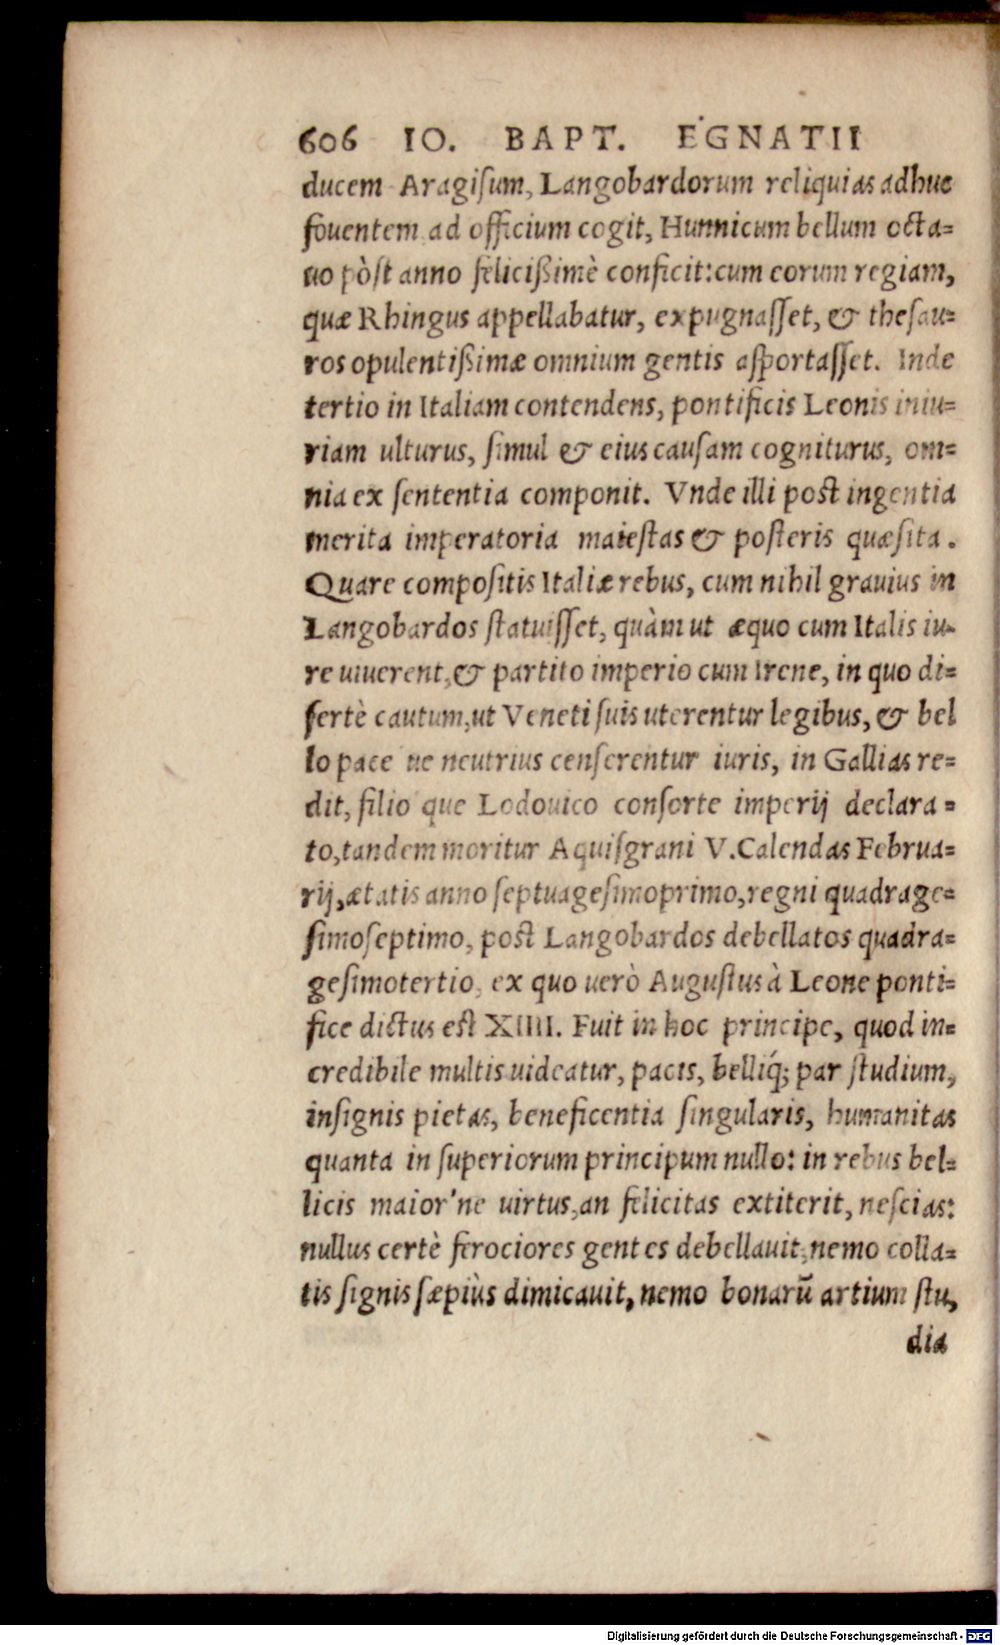 606 IO. BAPT. EGNATII
ducem Aragisum, Langobardorum reliquias adhuc
fouentem ad officium cogit, Hunnicum bellum octa=
uo pòst anno felicißimè conficit: cum eorum regiam,
quæ Rhingus appellabatur, expugnasset, & thesau=
ros opulentißimæ omnium gentis asportasset. Inde
tertio in Italiam contendens, pontificis Leonis iniu=
riam ulturus, simul & eius causam cogniturus, om=
nia ex sententia componit. Vnde illi post ingentia
merita imperatoria maiestas & posteris quæsita.
Quare compositis Italiæ rebus, cum nihil grauius in
Langobardos statuisset, quàm ut æquo cum Italis iu-
re uiuerent, & partito imperio cum Irene, in quo di=
sertè cautum, ut Veneti suis uterentur legibus, & bel
lo pace ue neutrius censerentur iuris, in Gallias re=
dit, filio que Lodouico consorte imperij declara=
to, tandem moritur Aquisgrani V. Calendas Februa=
rij, ætatis anno septuagesimoprimo, regni quadrage=
simoseptimo, post Langobardos debellatos quadra=
gesimotertio, ex quo uerò Augustus à Leone ponti=
fice dictus est XIIII. Fuit in hoc principe, quod in=
credibile multis uideatur, pacis, belliq́; par studium,
insignis pietas, beneficentia singularis, humanitas
quanta in superiorum principum nullo: in rebus bel=
licis maior'ne uirtus, an felicitas extiterit, nescias:
nullus certè ferociores gentes debellauit, nemo colla=
tis signis sæpiùs dimicauit, nemo bonarū artium stu,
dia
Digitalisierung gefördert durch die Deutsche Forschungsgemeinschaft - DFG